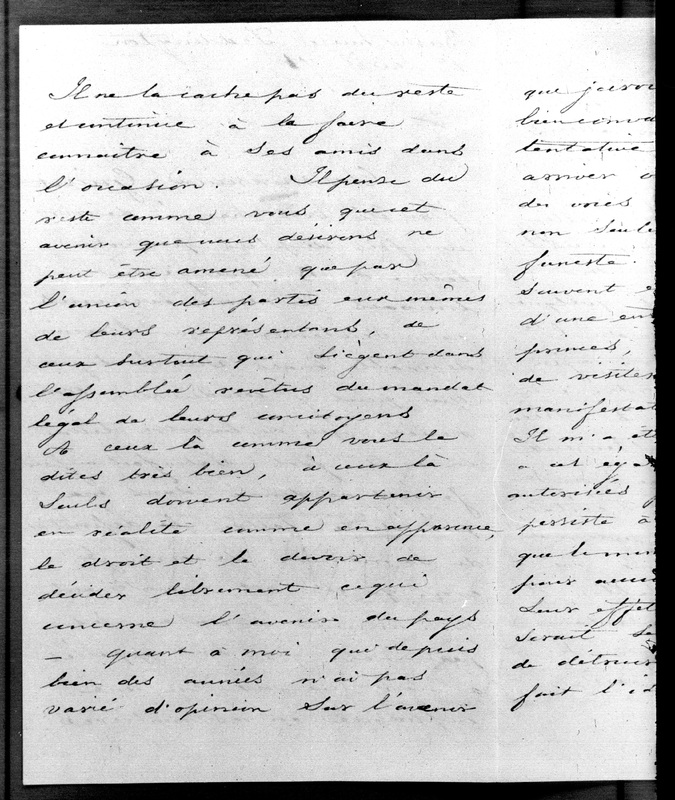 Il ne la cache pas du reste
et continue à la faire
connaître à ses amis dans
l'occasion. Il pense du
reste comme vous que cet
avenir que nous désirons ne
peut être amené que par
l'union des partis eux mêmes
de leurs représentans, de
ceux surtout qui siègent dans
l'assemblée revêtus du mandat
légal de leurs concitoyens
A ceux là comme vous le
dites très bien, à ceux là
seuls doivent appartenir
en réalité comme en apparence,
le droit et le devoir de
décider librement ce qui
concerne l'avenir du pays
— quant à moi qui depuis
bien des années n'ai pas
varié d'opinion sur l'avenir
que
bien
tentative
arriver
des voies
non seule
funeste.
souvent
d'une
princes,
de visites
manifestat
Il m'a
a cet
autorisées
persiste à
que
pour
leur effet
serait
de
fait